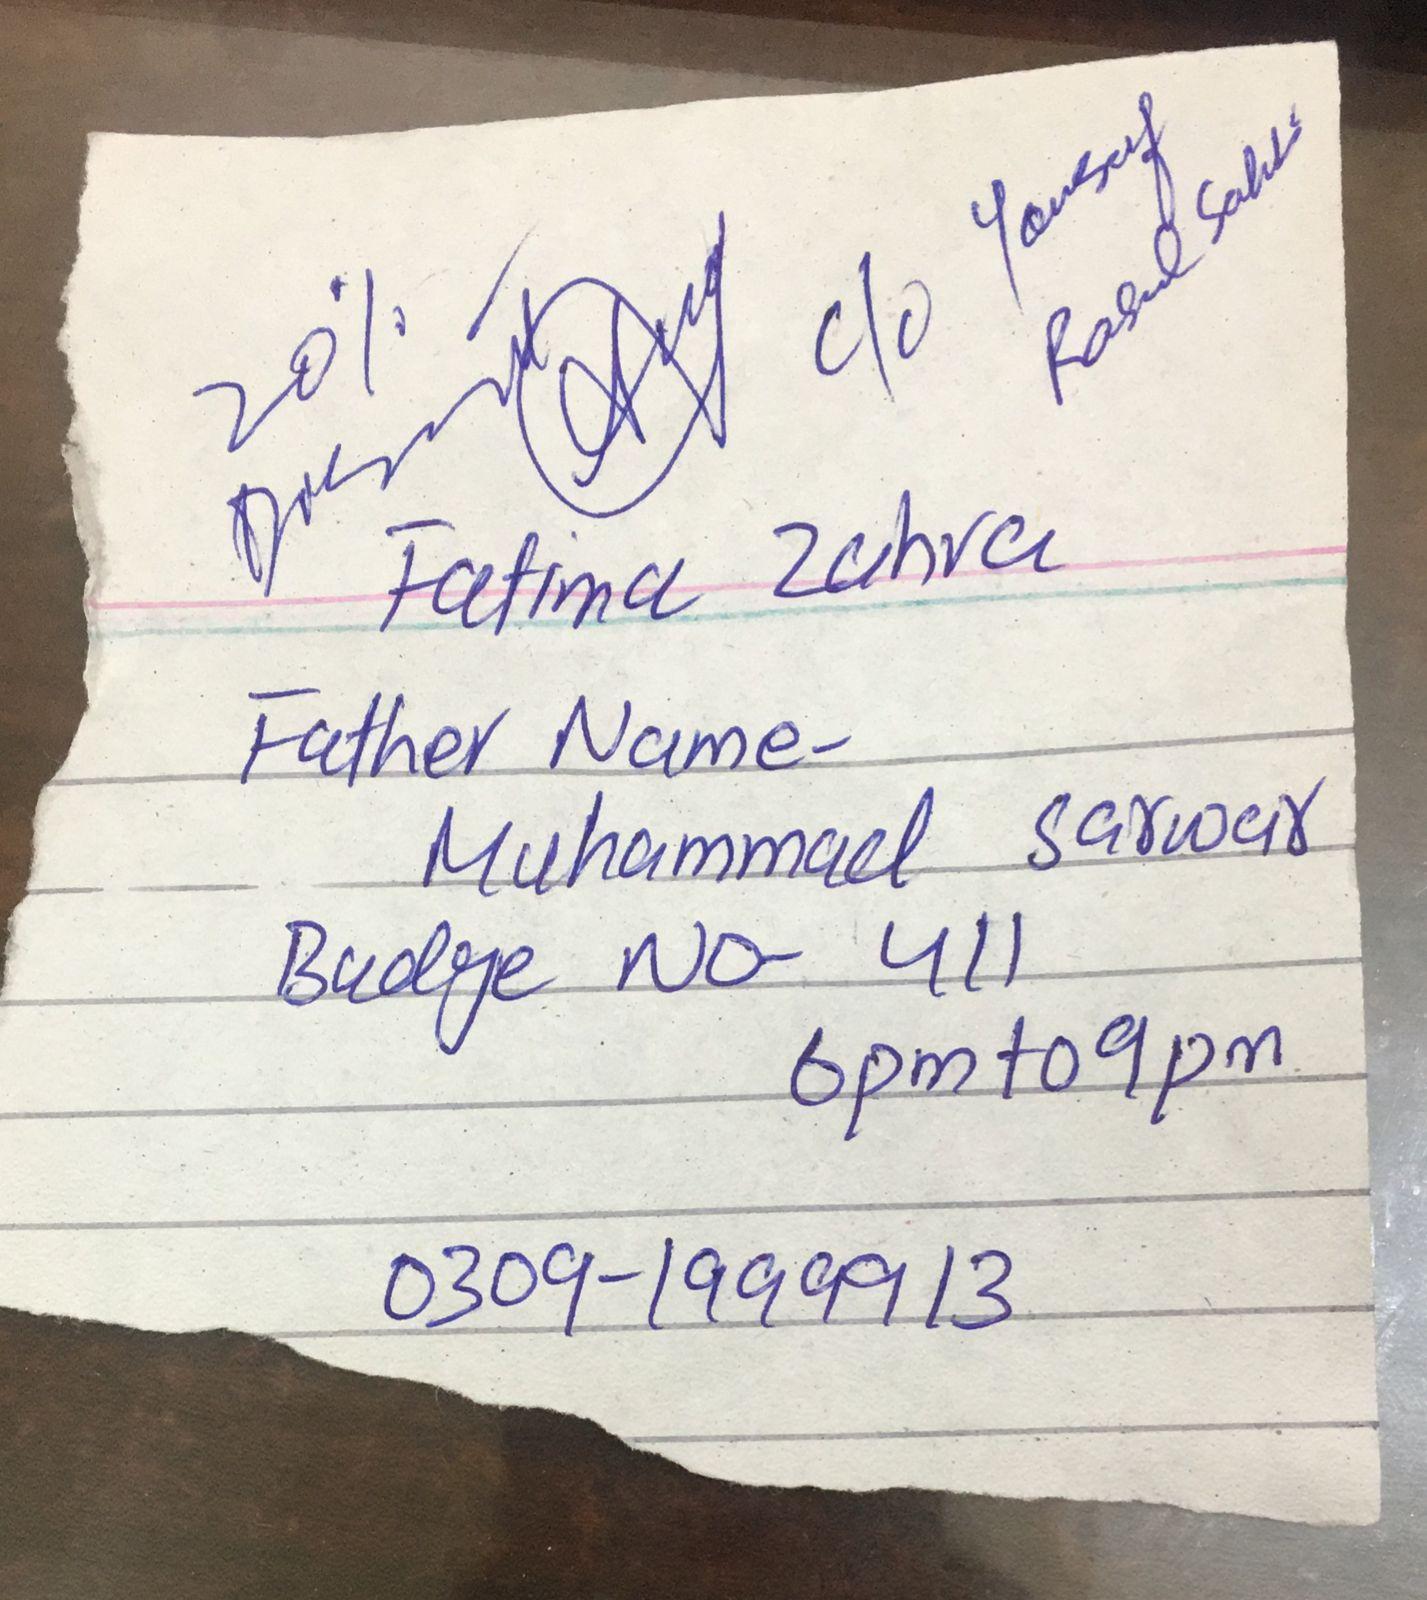 20%
c/o Yousuf
Rasul Sahi
Fatima Zahra
Father Name-
Muhammad Sarwar
Badge NO- 411
6pm to 9pm
0309-1999913